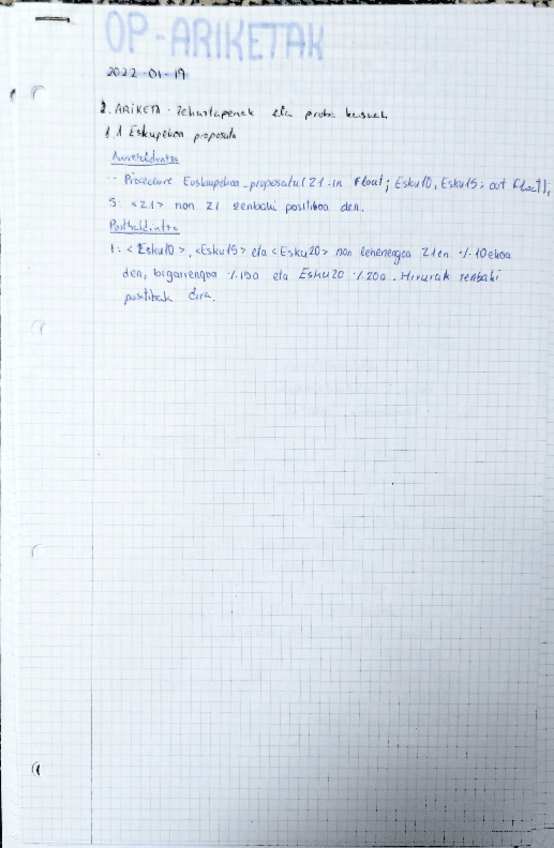 OP-ARIKETAK
2022-01-19
2. ARIKETA - Zehaztapenak eta proba kasuak
1.1 Eskupekoa proposatu
Aurrebaldintza
-- Procedure Euskupekoa_proposatu(Z1-in Float; Esku10, Esku15: out Float);
S: <Z1> non Z1 zenbaki positiboa den.
Postbaldintza
I: <Esku10>, <Esku15> eta <Esku20> non lehenengoa Z1en %10ekoa
den, bigarrengoa %15a eta Esku20 %20a. Hirurak zenbaki
positibak dira.